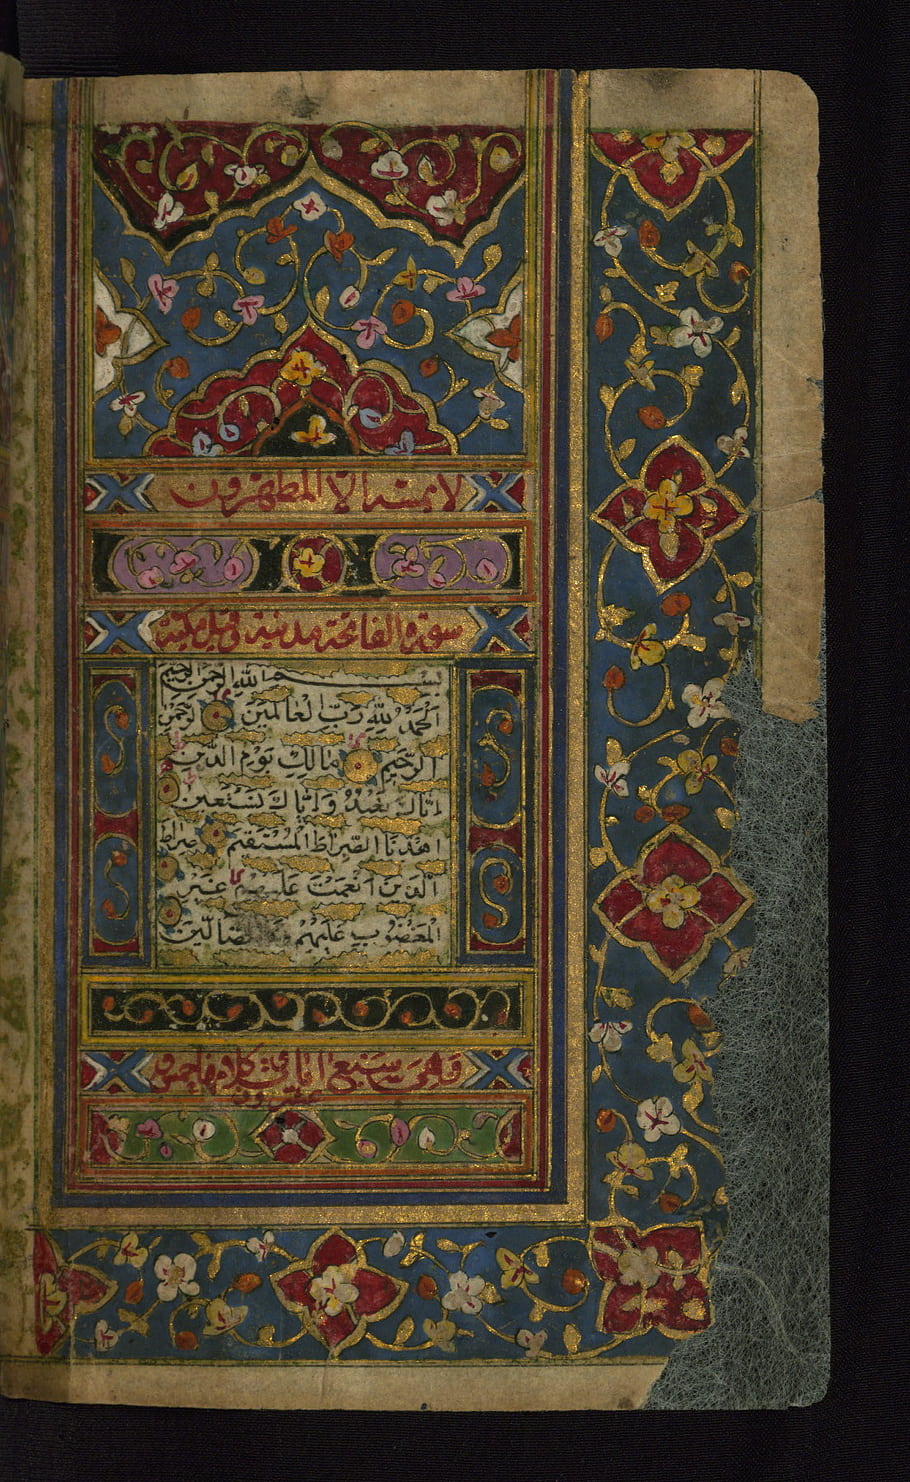 لا يمسه الا المطهرون
سورة الفاتحة مدنية و قيل مكية
بسم الله الرحمن الرحيم
اَلْحَمْدُ لِلّٰهِ رَبِّ الْعَالَمِينَ الرَّحْمٰنِ
الرَّحِيمِ مَالِكِ يَوْمِ الدِّينِ
اِيَّاكَ نَعْبُدُ وَاِيَّاكَ نَسْتَعِينُ
اِهْدِنَا الصِّرَاطَ الْمُسْتَقِيمَ صِرَاطَ
الَّذِينَ اَنْعَمْتَ عَلَيْهِمْ غَيْرِ
الْمَغْضُوبِ عَلَيْهِمْ الضَّالِّينَ
و هى سبع